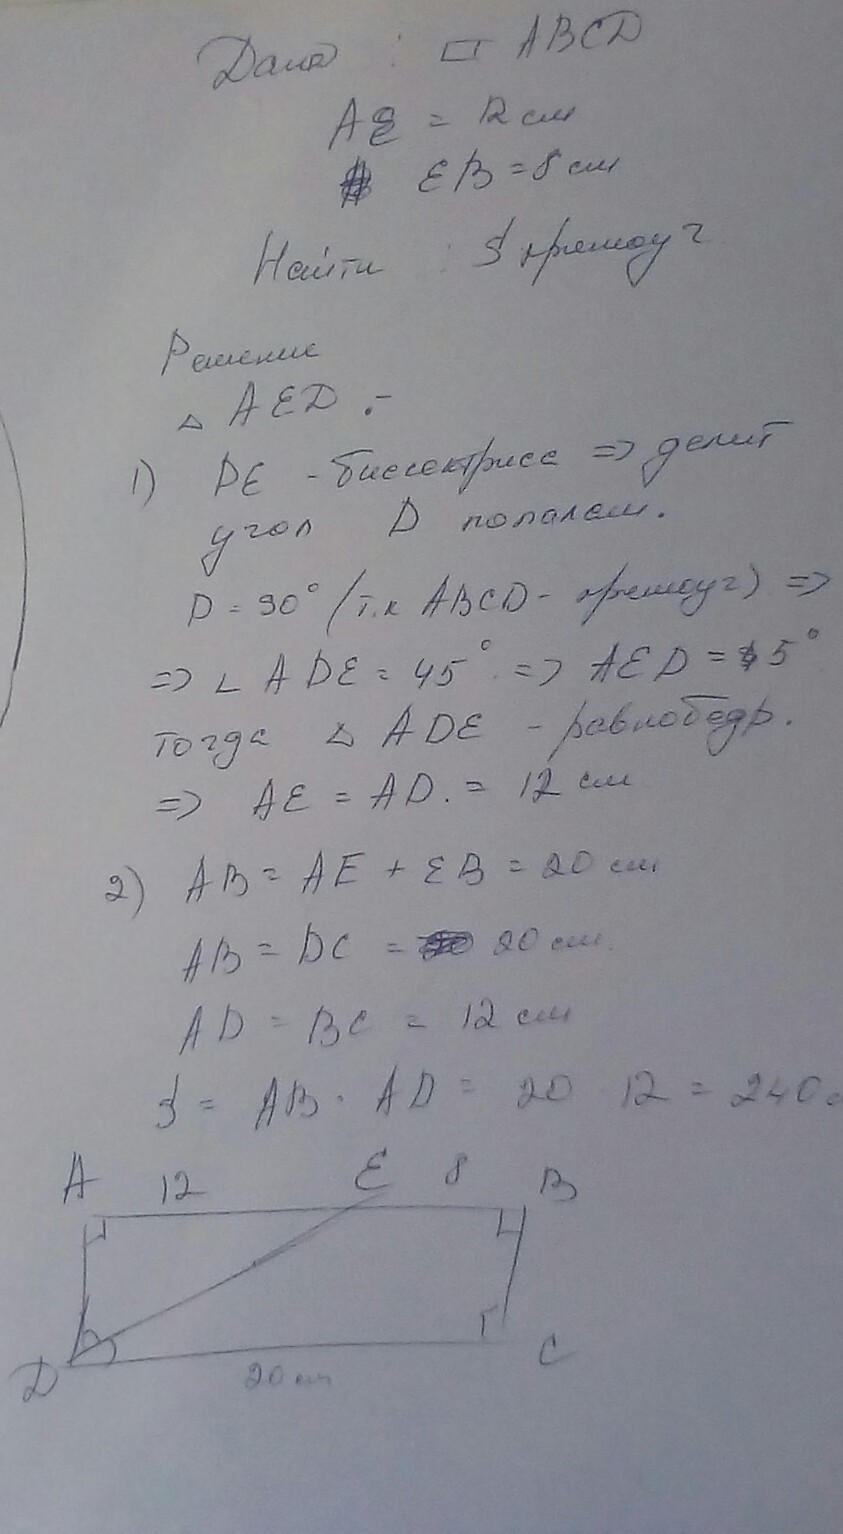 Дано : ▭ ABCD
AE = 12 см
EB = 8 см
Найти : S прямоуг
Решение
△ AED :-
1) DE - биссектриса => делит
угол D пополам.
D = 90° (т.к ABCD - прямоуг) =>
=> ∠ ADE = 45° => AED = 45°
тогда △ ADE - равнобедр.
=> AE = AD. = 12 см
2) AB = AE + EB = 20 см
AB = DC = 20 см.
AD = BC = 12 см
S = AB · AD = 20 12 = 240 с
A 12 E 8 B
D 20 см C